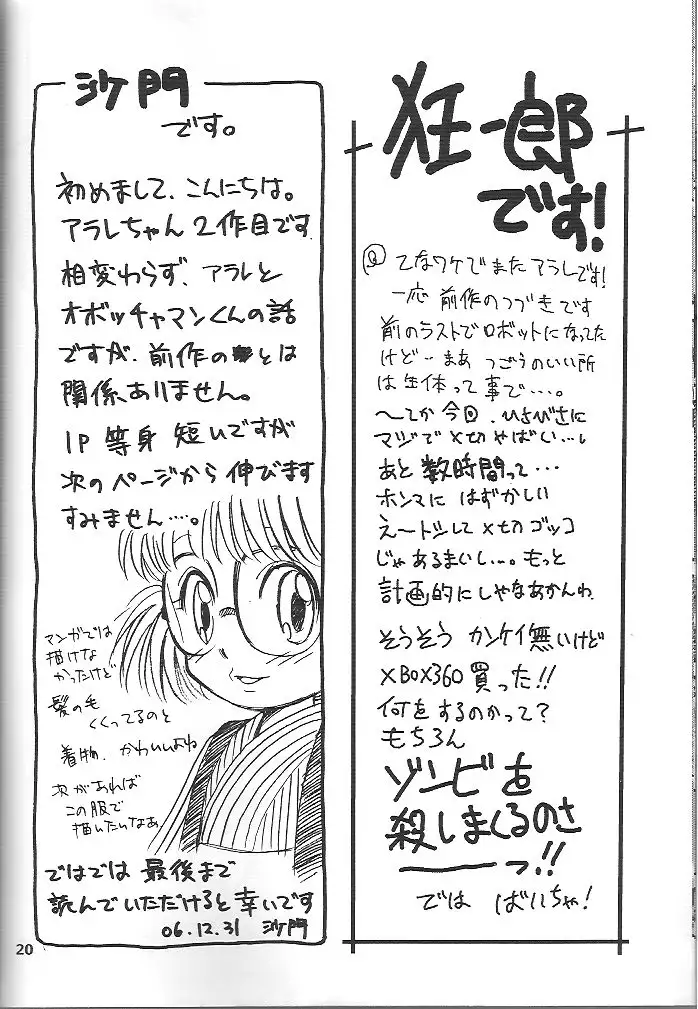 沙門
です。
初めまして、こんにちは。
アラレちゃん2作目です
相変わらず、アラレと
オボッチャマンくんの話
ですが、前作の とは
関係ありません。
1P 等身 短いですが
次のページから 伸びます
すみません…。
マンガでは
描けな
かったけど
髪の毛
くくってるのと
着物、かわいいよね
次があれば
この服で
描いたいなあ
ではでは 最後まで
読んでいただけると幸いです
06.12.31 沙門
狂一郎
です!
てなワケでまたアラレです!
一応 前作のつづきです
前のラストでロボットになってた
けど…まあ つごうのいい所
は生体って事で…。
〜てか今回、ひさびさに
マジで〆切やばい…。
あと 数時間って…
ホンマに はずかしい
え〜トシして〆切ゴッコ
じゃあるまいし…。もっと
計画的にしゃなあかんわ
そうそう カンケイ無いけど
XBOX360買った!!
何をするのかって?
もちろん
ゾンビを
殺しまくるのさ
――っ!!
では ばいちゃ!
20